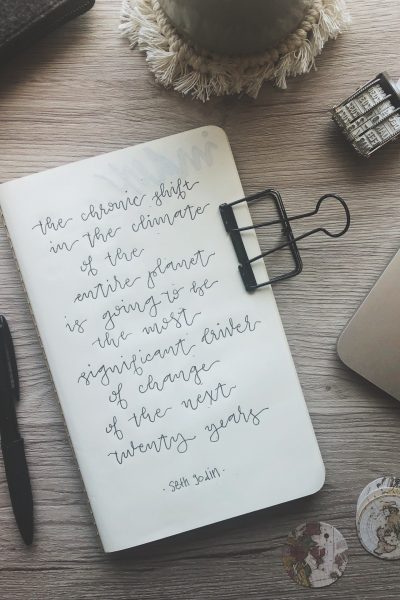 the chronic shift
in the climate
of the
entire planet
is going to be
the most
significant driver
of change
of the next
twenty years
· seth godin ·